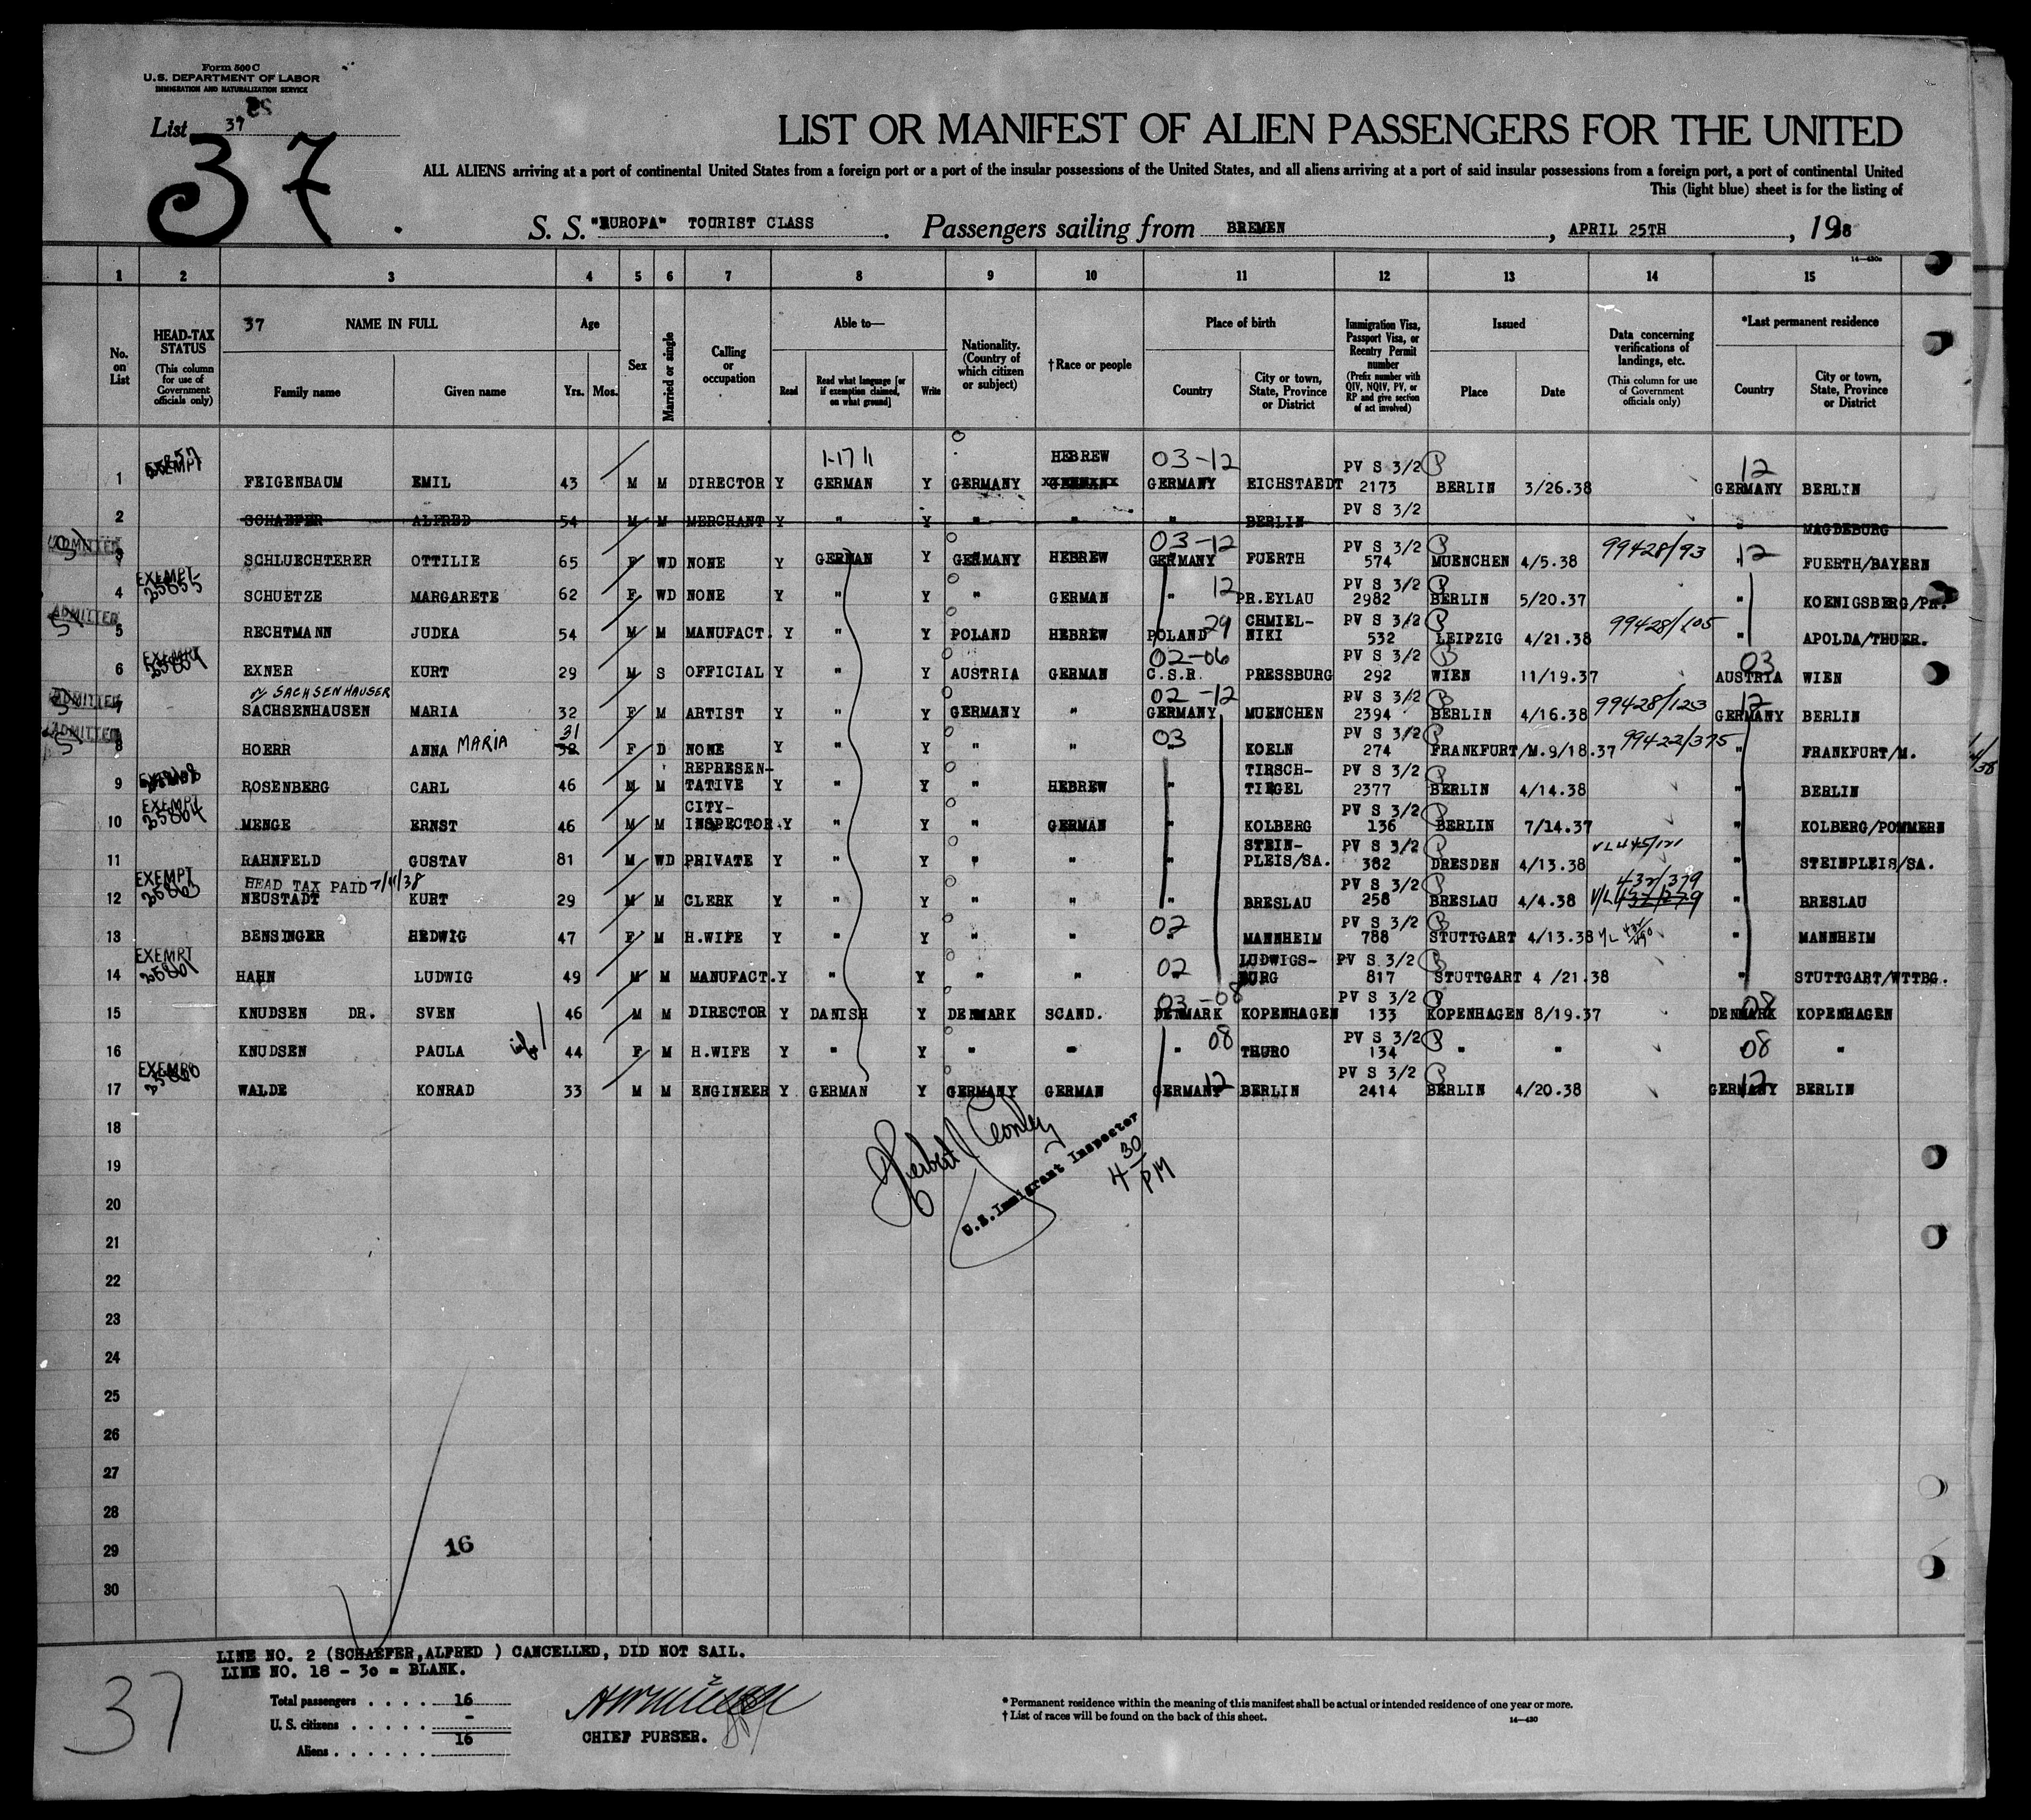 Form 500 C
U. S. DEPARTMENT OF LABOR
IMMIGRATION AND NATURALIZATION SERVICE
List 37
37
LIST OR MANIFEST OF ALIEN PASSENGERS FOR THE UNITED
ALL ALIENS arriving at a port of continental United States from a foreign port or a port of the insular possessions of the United States, and all aliens arriving at a port of said insular possessions from a foreign port, a port of continental United
This (light blue) sheet is for the listing of
S. S. "EUROPA" TOURIST CLASS . Passengers sailing from BREMEN , APRIL 25TH , 1938
14—430a
1 2 3 4 5 6 7 8 9 10 11 12 13 14 15
No. on List
HEAD-TAX STATUS (This column for use of Government officials only)
37 NAME IN FULL Family name Given name
Age Yrs. Mos.
Sex
Married or single
Calling or occupation
Able to— Read Read what language [or if exemption claimed, on what ground] Write
Nationality. (Country of which citizen or subject)
†Race or people
Place of birth Country City or town, State, Province or District
Immigration Visa, Passport Visa, or Reentry Permit number (Prefix number with QIV, NQIV, PV, or RP and give section of act involved)
Issued Place Date
Data concerning verifications of landings, etc. (This column for use of Government officials only)
*Last permanent residence Country City or town, State, Province or District
EXEMPT 1-17 11 HEBREW 03-12 PV S 3/2 12
1 FEIGENBAUM EMIL 43 M M DIRECTOR Y GERMAN Y GERMANY GERMANY EICHSTAEDT 2173 BERLIN 3/26.38 GERMANY BERLIN
2 SCHAEFER ALFRED 54 M M MERCHANT Y " Y " " " BERLIN PV S 3/2 " MAGDEBURG
ADMITTED 03-12 PV S 3/2 99428/93 12
3 SCHLUECHTERER OTTILIE 65 F WD NONE Y GERMAN Y GERMANY HEBREW GERMANY FUERTH 574 MUENCHEN 4/5.38 " FUERTH/BAYERN
EXEMPT 25855 12 PV S 3/2
4 SCHUETZE MARGARETE 62 F WD NONE Y " Y " GERMAN " PR.EYLAU 2982 BERLIN 5/20.37 " KOENIGSBERG/PR.
ADMITTED 29 CHMIEL- PV S 3/2 99428/105
5 RECHTMANN JUDKA 54 M M MANUFACT. Y " Y POLAND HEBREW POLAND NIKI 532 LEIPZIG 4/21.38 " APOLDA/THUER.
EXEMPT 02-06 PV S 3/2 03
6 EXNER KURT 29 M S OFFICIAL Y " Y AUSTRIA GERMAN C.S.R. PRESSBURG 292 WIEN 11/19.37 AUSTRIA WIEN
ADMITTED SACHSENHAUSER 02-12 PV S 3/2 99428/123 12
7 SACHSENHAUSEN MARIA 32 F M ARTIST Y " Y GERMANY " GERMANY MUENCHEN 2394 BERLIN 4/16.38 GERMANY BERLIN
ADMITTED 31 03 PV S 3/2 99422/375
8 HOERR ANNA MARIA 32 F D NONE Y " Y " " " KOELN 274 FRANKFURT/M. 9/18.37 " FRANKFURT/M.
EXEMPT REPRESEN- TIRSCH- PV S 3/2
9 ROSENBERG CARL 46 M M TATIVE Y " Y " HEBREW " TIEGEL 2377 BERLIN 4/14.38 " BERLIN
EXEMPT 25864 CITY- PV S 3/2
10 MENGE ERNST 46 M M INSPECTOR Y " Y " GERMAN " KOLBERG 136 BERLIN 7/14.37 " KOLBERG/POMMERN
STEIN- PV S 3/2
11 RAHNFELD GUSTAV 81 M WD PRIVATE Y " Y " " " PLEIS/SA. 382 DRESDEN 4/13.38 " STEINPLEIS/SA.
EXEMPT 25863 HEAD TAX PAID 7/11/38 PV S 3/2 432/379
12 NEUSTADT KURT 29 M M CLERK Y " Y " " " BRESLAU 258 BRESLAU 4/4.38 " BRESLAU
02 PV S 3/2
13 BENSINGER HEDWIG 47 F M H.WIFE Y " Y " " " MANNHEIM 788 STUTTGART 4/13.38 " MANNHEIM
EXEMPT 25861 02 LUDWIGS- PV S 3/2
14 HAHN LUDWIG 49 M M MANUFACT. Y " Y " " " BURG 817 STUTTGART 4/21.38 " STUTTGART/WTTBG.
03-08 PV S 3/2 08
15 KNUDSEN DR. SVEN 46 M M DIRECTOR Y DANISH Y DENMARK SCAND. DENMARK KOPENHAGEN 133 KOPENHAGEN 8/19.37 DENMARK KOPENHAGEN
08 PV S 3/2 08
16 KNUDSEN PAULA 44 F M H.WIFE Y " Y " " " THURO 134 " " "
EXEMPT 25860 12 PV S 3/2 12
17 WALDE KONRAD 33 M M ENGINEER Y GERMAN Y GERMANY GERMAN GERMANY BERLIN 2414 BERLIN 4/20.38 GERMANY BERLIN
18
19
20
21
22
23
24
25
26
27
28
29
30
U.S. Immigrant Inspector
4 30 PM
16
LINE NO. 2 (SCHAEFER,ALFRED ) CANCELLED, DID NOT SAIL.
LINE NO. 18 - 30 = BLANK.
Total passengers . . . . 16
U. S. citizens . . . . . -
Aliens . . . . . . 16
37
CHIEF PURSER.
* Permanent residence within the meaning of this manifest shall be actual or intended residence of one year or more.
† List of races will be found on the back of this sheet.
14—430